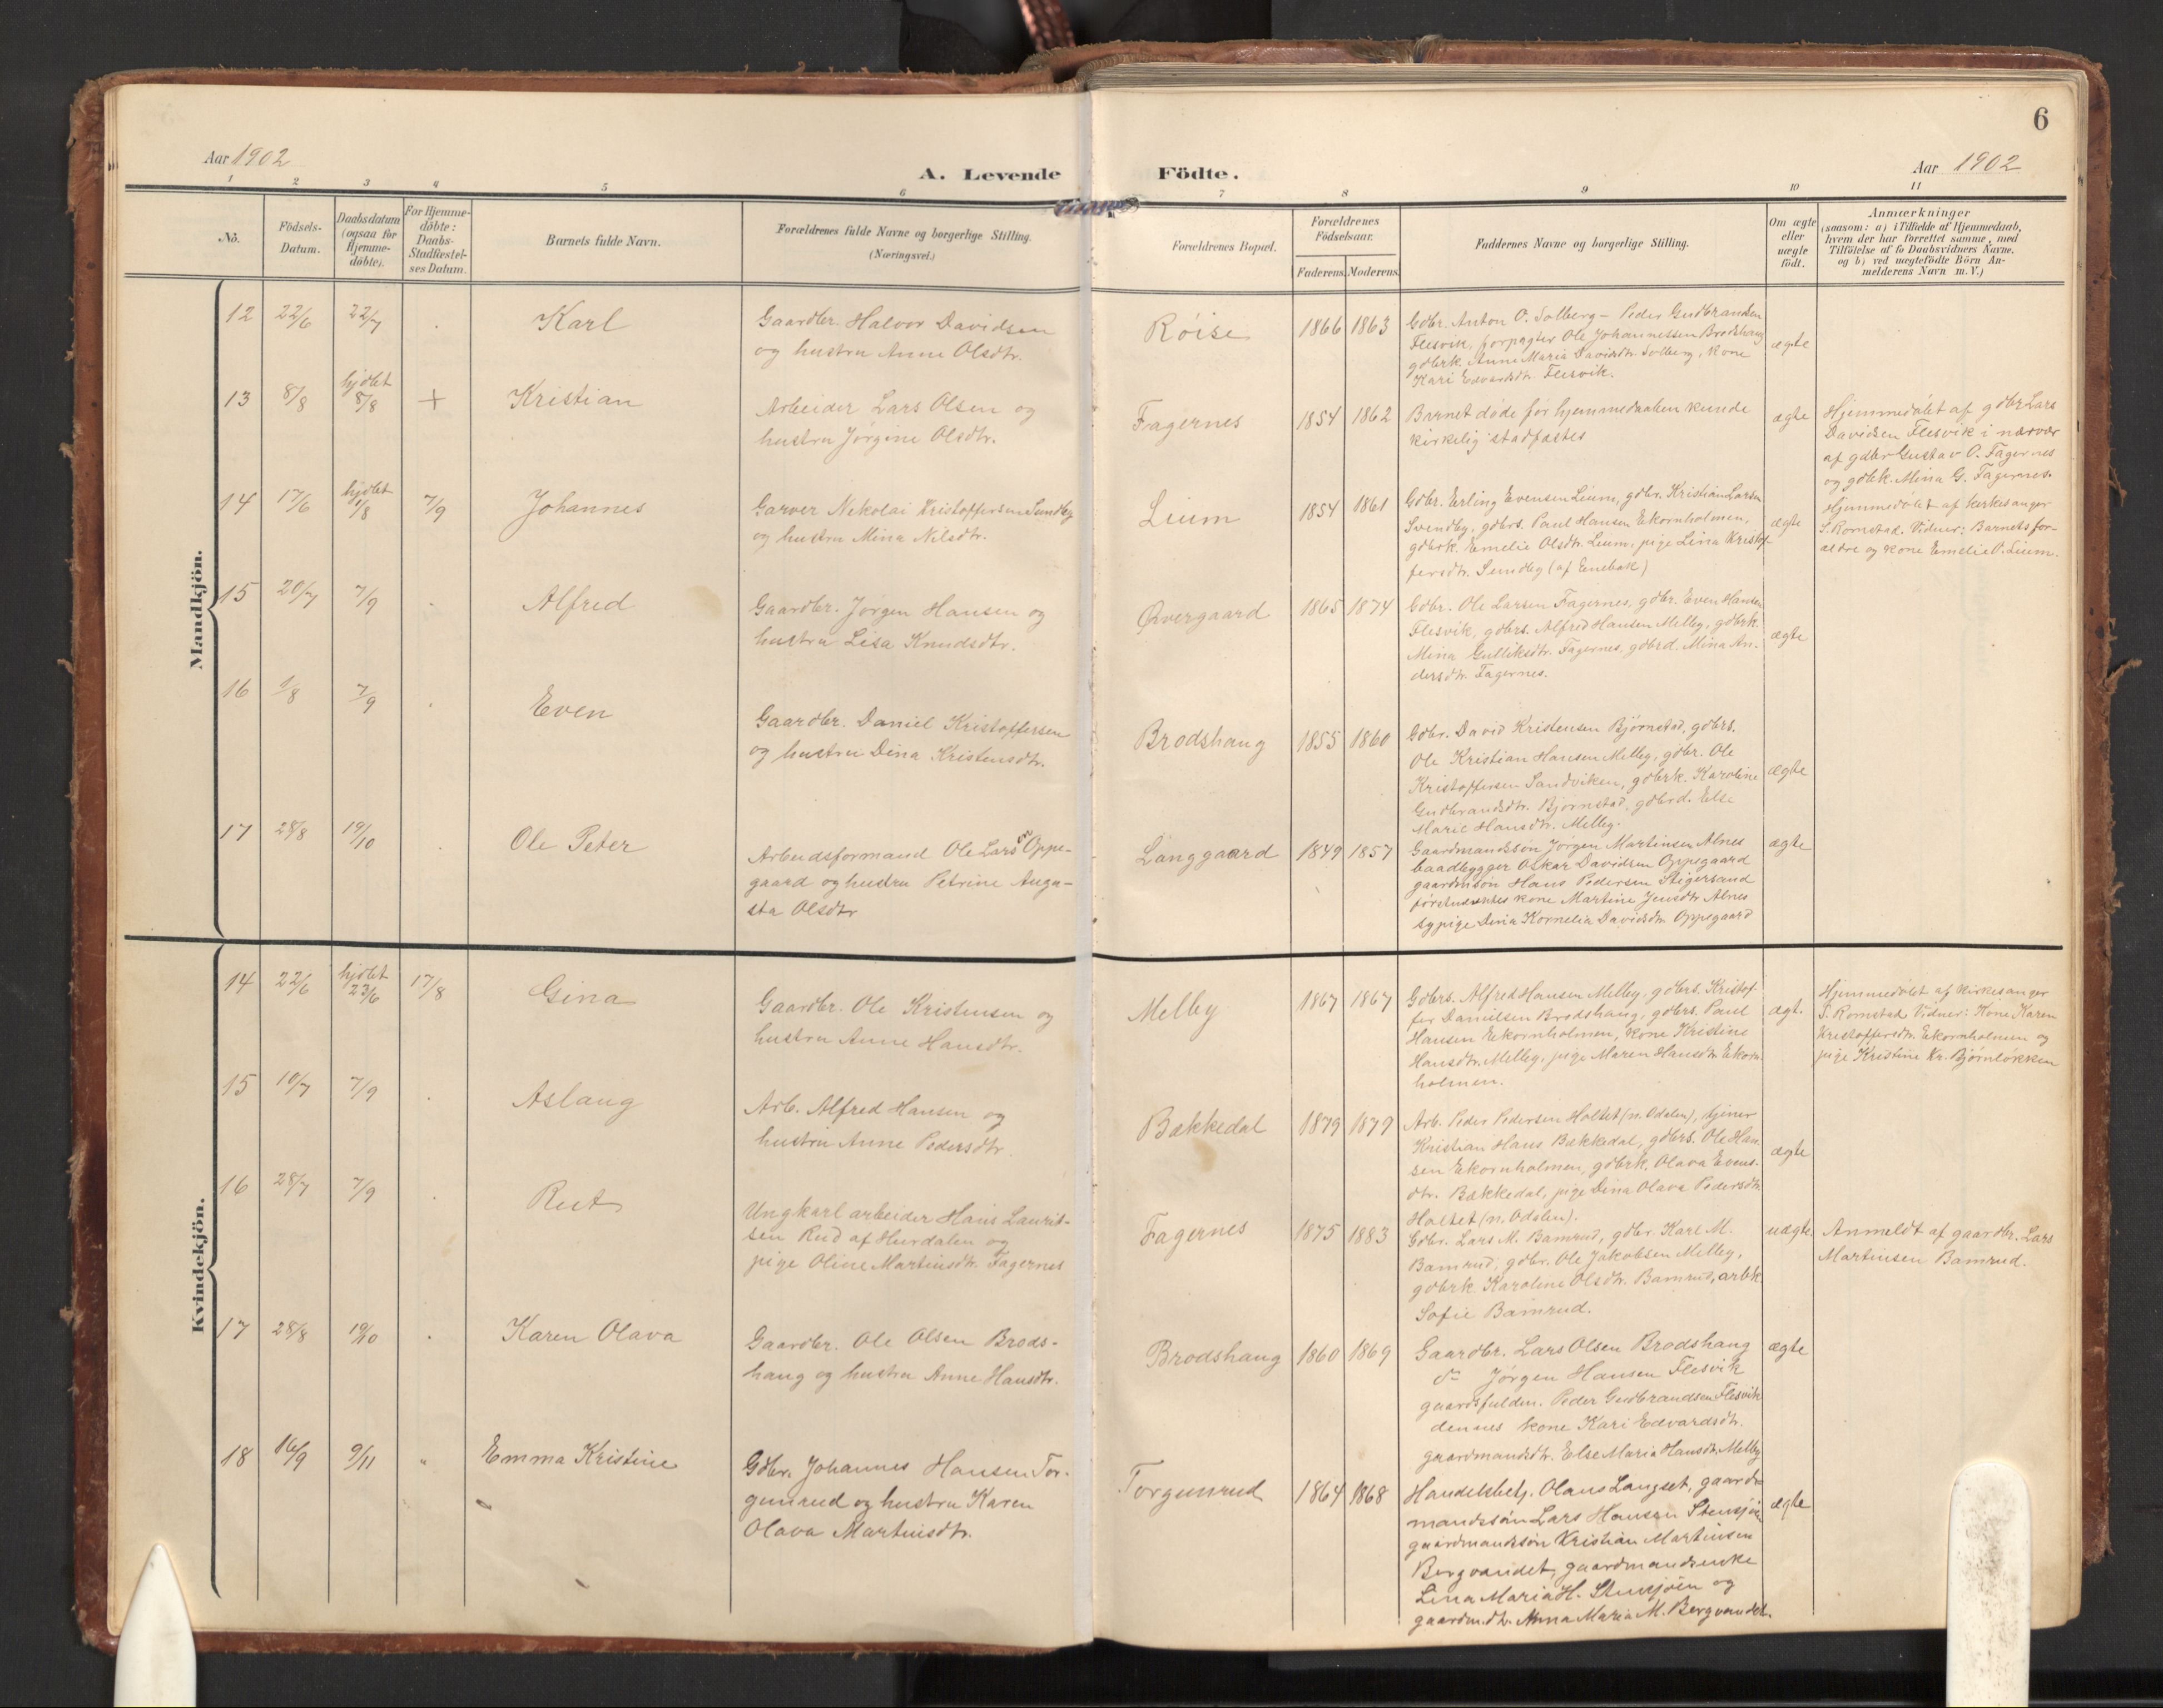 6
Aar 1902
A. Levende Födte.
Aar 1902
1 2 3 4 5 6 7 8 9 10 11
No.
Födsels-
Datum.
Daabsdatum
(ogsaa for
Hjemme-
döbte).
For Hjemme-
döbte:
Daabs-
Stadfæstel-
ses Datum.
Barnets fulde Navn.
Forældrenes fulde Navne og borgerlige Stilling.
(Næringsvei.)
Forældrenes Bopæl.
Forældrenes
Födselsaar.
Faderens. Moderens.
Faddernes Navne og borgerlige Stilling.
Om ægte
eller
uægte
födt.
Anmærkninger
(saasom: a) i Tilfælde af Hjemmedaab,
hvem der har forrettet samme, med
Tilföielse af to Daabsvidners Navne,
og b) ved uægtefödte Börn An-
melderens Navn m. V.)
Mandkjön.
12 22/6 22/7 . Karl
Gaardbr. Halvor Davidsen
og hustru Anne Olsdtr.
Røise 1866 1863
Gdbr. Anton O. Solberg – Peder Gudbrandsen
Flesvik, forpagter Ole Johannessen Brodshaug
gdbrk. Anne Maria Davidsdtr. Solberg, kone
Kari Edvardsdtr. Flesvik.
ægte
13 8/8 hjdbt 8/8 + Kristian
Arbeider Lars Olsen og
hustru Jørgine Olsdtr.
Fagernes 1854 1862
Barnet døde før hjemmedaaben kunde
kirkelig stadfæstes
ægte
Hjemmedøbt af gdbr Lars
Davidsen Flesvik i nærvær
af gdbr Gustav O. Fagernes
og gdbk. Mina G. Fagernes.
14 17/6 hjdbt 1/8 7/9 Johannes
Garver Nikolai Kristoffersen Sundby
og hustru Mina Nilsdtr.
Lium 1854 1861
Gdbr. Erling Evensen Lium, gdbr. Kristian Larsen
Svendby, gdbrs. Paul Hansen Ekornholmen,
gdbrk. Emelie Olsdtr. Lium, pige Lina Kristof-
fersdtr. Sundby (af Enebak)
ægte
Hjemmedøbt af kirkesanger
S. Romstad. Vidner: Barnets for-
ældre og kone Emelie O. Lium.
15 20/7 7/9 . Alfred
Gaardbr. Jørgen Hansen og
hustru Lisa Knudsdtr.
Øvergaard 1865 1874
Gdbr. Ole Larsen Fagernes, gdbr. Even Hansen
Flesvik, gdbrs. Alfred Hansen Melby, gdbrk.
Mina Gulliksdtr. Fagernes, gdbrd. Mina An-
dersdtr. Fagernes.
ægte
16 1/8 7/9 . Even
Gaardbr. Daniel Kristoffersen
og hustru Dina Kristensdtr.
Brodshaug 1855 1860
Gdbr. David Kristensen Bjørnstad, gdbrs.
Ole Kristian Hansen Melby, gdbr. Ole
Kristoffersen Sandviken, gdbrk. Karoline
Gudbrandsdtr. Bjørnstad, gdbrd. Else
Marie Hansdtr. Melby.
ægte
17 28/8 19/10 . Ole Peter
Arbeidsformand Ole Larsen Oppe-
gaard og hustru Petrine Augu-
sta Olsdtr
Langgaard 1849 1857
Gaardmandssøn Jørgen Martinsen Alnes
baadbygger Oskar Davidsen Oppegaard
gaardmsøn Hans Pedersen Stigersand
førstnævntes kone Martine Jensdtr Alnes
sypige Dina Kornelia Davidsdtr. Oppegaard
ægte
Kvindekjön.
14 22/6 hjdbt 23/6 17/8 Gina
Gaardbr. Ole Kristensen og
hustru Anne Hansdtr.
Melby 1867 1867
Gdbrs. Alfred Hansen Melby, gdbrs. Kristof-
fer Danielsen Brodshaug, gdbrs. Paul
Hansen Ekornholmen, kone Kristine
Hansdtr. Melby, pige Maren Hansdtr. Ekorn-
holmen.
ægt.
Hjemmedøbt af kirkesanger
S. Romstad Vidner: Kone Karen
Kristoffersdtr. Ekornholmen og
pige Kristine Kr. Bjørnløkken
15 10/7 7/9 . Aslaug
Arb. Alfred Hansen og
hustru Anne Pedersdtr.
Bækkedal 1879 1879
Arb. Peder Pedersen Holtet (n. Odalen), tjener
Kristian Hans. Bækkedal, gdbrs. Ole Han-
sen Ekornholmen, gdbrk. Olava Evens-
dtr. Bækkedal, pige Dina Olava Pedersdtr.
Holtet (n. Odalen).
ægte
16 28/7 7/9 . Rut
Ungkarl arbeider Hans Laurit-
sen Rud af Hurdalen og
pige Oline Martinsdtr. Fagernes
Fagernes 1875 1883
Gdbr. Lars M. Bamrud, gdbr. Karl M.
Bamrud, gdbr. Ole Jakobsen Melby,
gdbrk. Karoline Olsdtr. Bamrud, arbk.
Sofie Bamrud.
uægte.
Anmeldt af gaardbr. Lars
Martinsen Bamrud.
17 28/8 19/10 . Karen Olava
Gaardbr. Ole Olsen Brods-
haug og hustru Anne Hansdtr.
Brodshaug 1860 1869
Gaardbr. Lars Olsen Brodshaug
do Jørgen Hansen Flesvik
gaardsfuldm. Peder Gudbrandsen Flesvik
dennes kone Kari Edvardsdtr.
gaardmandsdtr. Else Maria Hansdtr. Melby
ægte
18 16/9 9/11 " Emma Kristine
Gdbr. Johannes Hansen Tor-
gunrud og hustru Karen
Olava Martinsdtr.
Torgunrud 1864 1868
Handelsbetj. Olaus Langset, gaard-
mandssøn Lars Hansen Stensjøen
gaardmandssøn Kristian Martinsen
Bergvandet, gaardmandsenke
Lina Maria H. Stensjøen og
gaardm.dtr. Anna Maria M. Bergvandet.
ægte